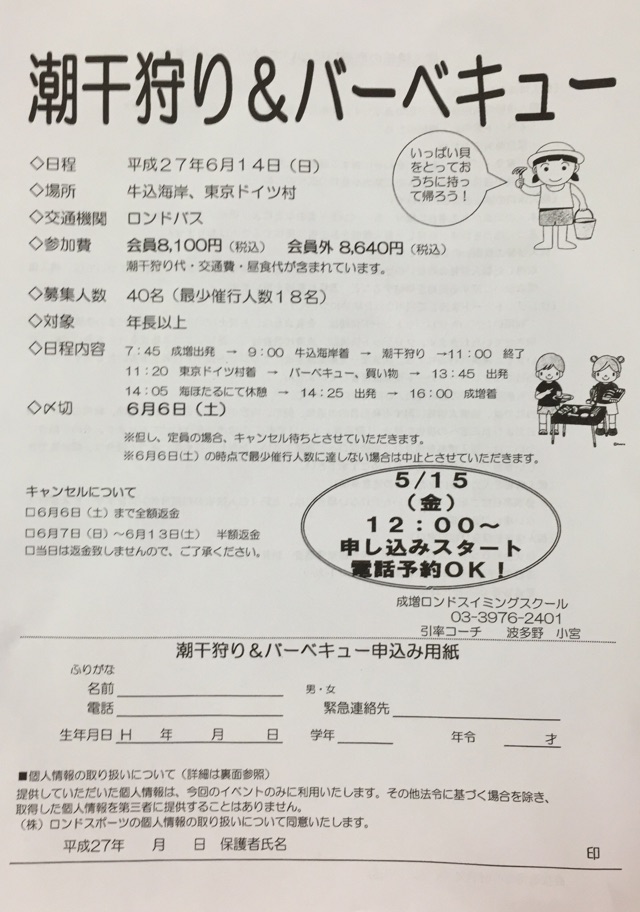 潮干狩り＆バーベキュー
いっぱい貝
をとってお
うちに持っ
て帰ろう！
◇日程 平成２７年６月１４日（日）
◇場所 牛込海岸、東京ドイツ村
◇交通機関 ロンドバス
◇参加費 会員8,100円（税込） 会員外 8,640円（税込）
潮干狩り代・交通費・昼食代が含まれています。
◇募集人数 40名（最少催行人数１８名）
◇対象 年長以上
◇日程内容 ７：45 成増出発 → ９：00 牛込海岸着 → 潮干狩り →11：00 終了
11：20 東京ドイツ村着 → バーベキュー、買い物 → 13：45 出発
14：05 海ほたるにて休憩 → 14：25 出発 → 16：00 成増着
◇〆切 ６月６日（土）
※但し、定員の場合、キャンセル待ちとさせていただきます。
※６月６日(土）の時点で最少催行人数に達しない場合は中止とさせていただきます。
キャンセルについて
□６月６日（土）まで全額返金
□６月７日（日）～６月１３日(土） 半額返金
□当日は返金致しませんので、ご了承ください。
５/１５
（金）
１２：００～
申し込みスタート
電話予約OK！
成増ロンドスイミングスクール
03-3976-2401
引率コーチ 波多野 小宮
潮干狩り＆バーベキュー申込み用紙
ふりがな
名前 男・女
電話 緊急連絡先
生年月日 H 年 月 日 学年 年令 才
■個人情報の取り扱いについて（詳細は裏面参照）
提供していただいた個人情報は、今回のイベントのみに利用いたします。その他法令に基づく場合を除き、
取得した個人情報を第三者に提供することはありません。
（株）ロンドスポーツの個人情報の取り扱いについて同意いたします。
平成27年 月 日 保護者氏名 印